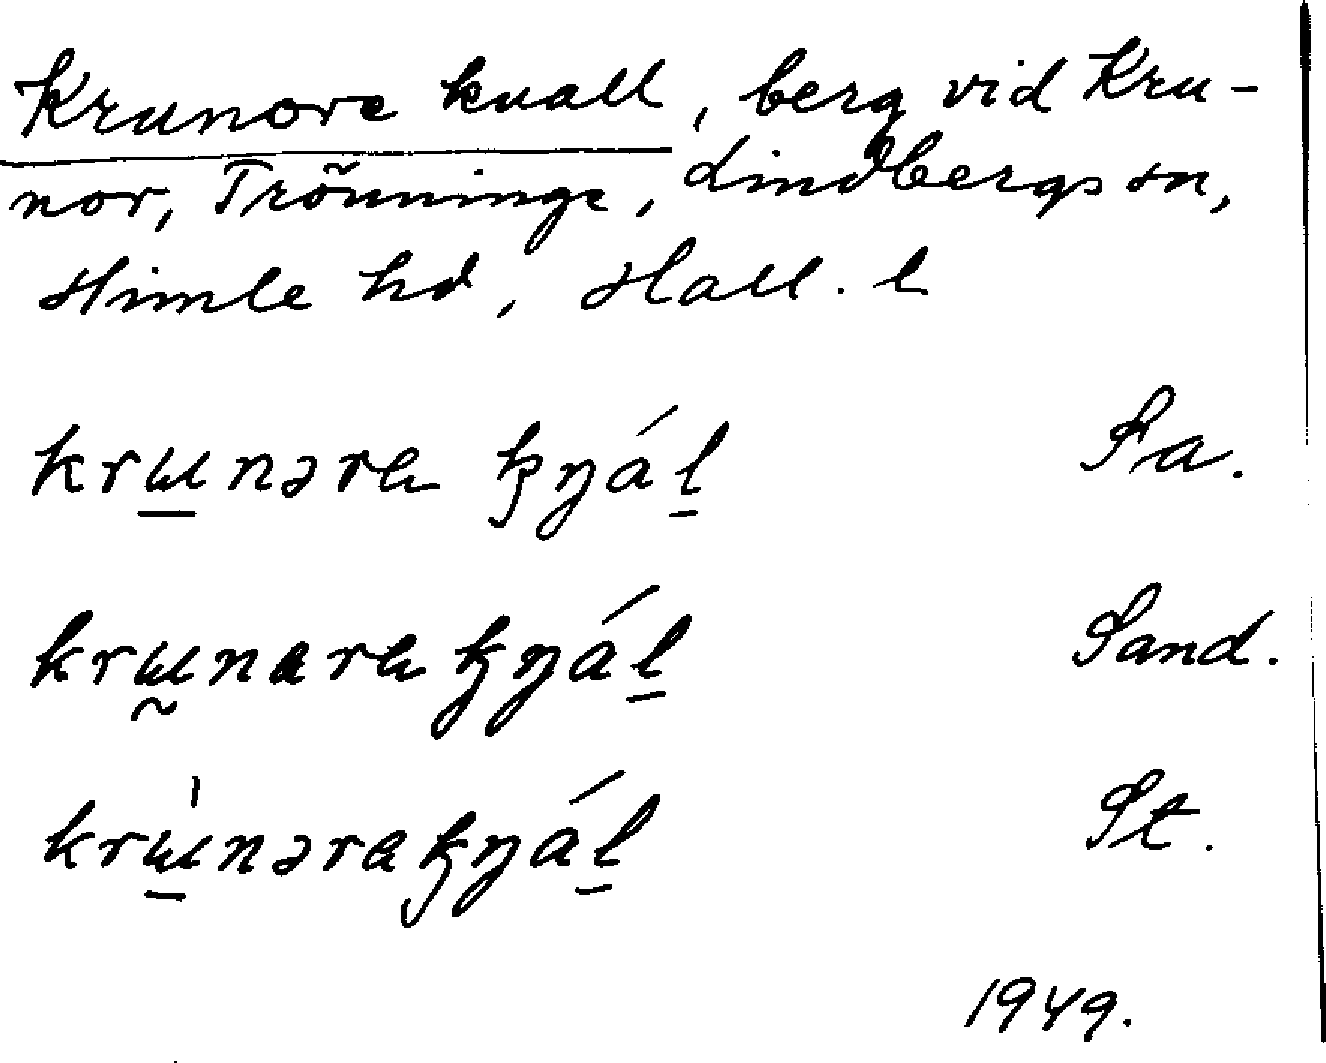 Krunore knall, berg vid Kru-
nor, Trönninge, Lindbergs sn,
Himle hd, Hall. l
krɯ̲nəra ꞣŋál̲ Fa.
krɯ̰nara ꞣŋál̲ Sand.
krɯ̲́nəraꞣŋál̲ St.
1949.